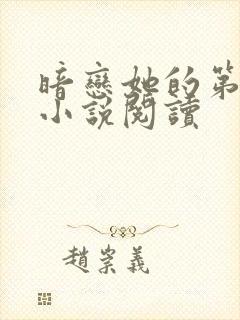 暗戀她的第
小說閱讀
趙崇義